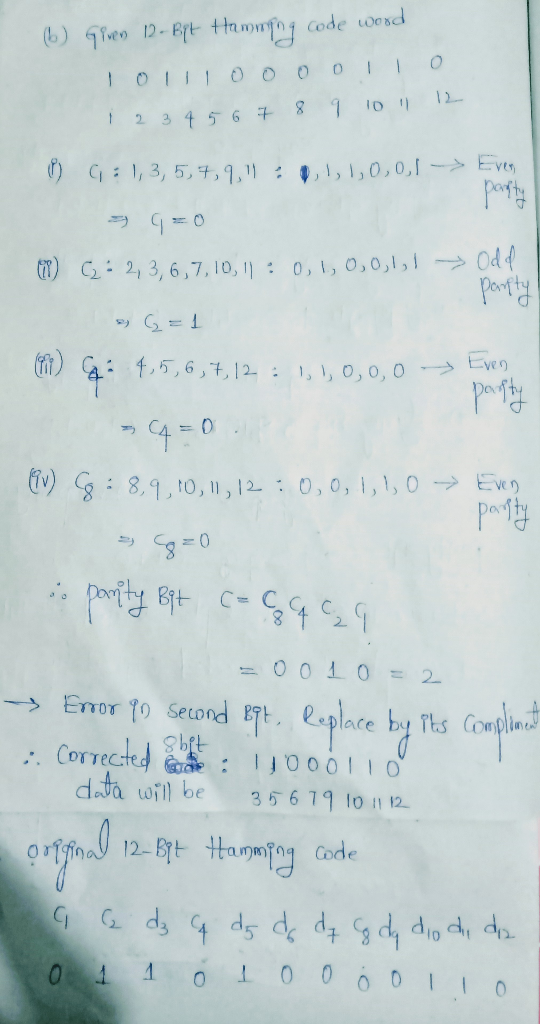 (b) Given 12-Bit Hamming code word
1 0 1 1 1 0 0 0 0 1 1 0
1 2 3 4 5 6 7 8 9 10 11 12
(i) C1 : 1, 3, 5, 7, 9, 11 : 1, 1, 1, 0, 0, 1 → Even parity
⇒ C1 = 0
(ii) C2 : 2, 3, 6, 7, 10, 11 : 0, 1, 0, 0, 1, 1 → Odd parity
⇒ C2 = 1
(iii) C4 : 4, 5, 6, 7, 12 : 1, 1, 0, 0, 0 → Even parity
⇒ C4 = 0
(iv) C8 : 8, 9, 10, 11, 12 : 0, 0, 1, 1, 0 → Even parity
⇒ C8 = 0
∴ parity Bit C = C8 C4 C2 C1
= 0 0 1 0 = 2
→ Error in second Bit. Replace by its Compliment
∴ Corrected 8bit : 1 1 0 0 0 1 1 0
data will be 3 5 6 7 9 10 11 12
original 12-Bit Hamming code
C1 C2 d3 C4 d5 d6 d7 C8 d9 d10 d11 d12
0 1 1 0 1 0 0 0 0 1 1 0